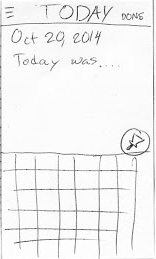 TODAY DONE
Oct 20, 2014
Today was....